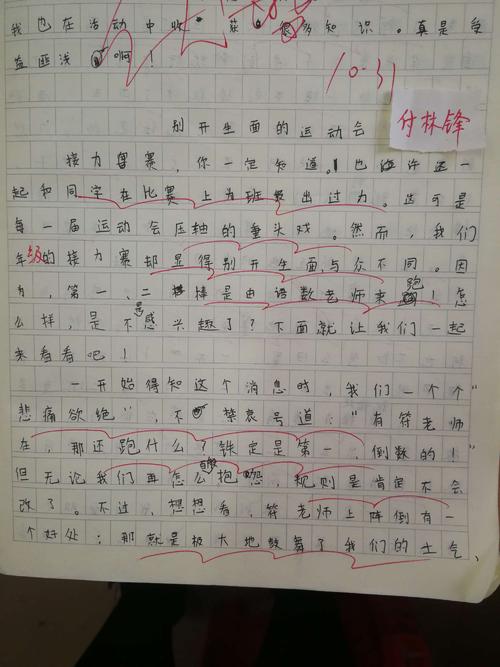 我也在活动中收获很多知识。真是受
益匪浅啊！
10.31
付林锋
别开生面的运动会
接力赛，你一定知道。也许还
起和同学在比赛上为班级出过力。这可是
每一届运动会压轴的重头戏。然而，我们
年级的接力赛却显得别开生面与众不同。因
为，第一、二棒是由语数老师来跑！怎
么样，是不是感兴趣了？下面就让我们一起
来看看吧！
一开始得知这个消息时，我们一个个“
悲痛欲绝”，不禁哀号道：“有符老师
在，那还跑什么？铁定是第一，倒数的！”
但无论我们再怎么抱怨，规则是肯定不会
改了。不过，想想看，符老师上阵倒有一
个好处：那就是极大地鼓舞了我们的士气，